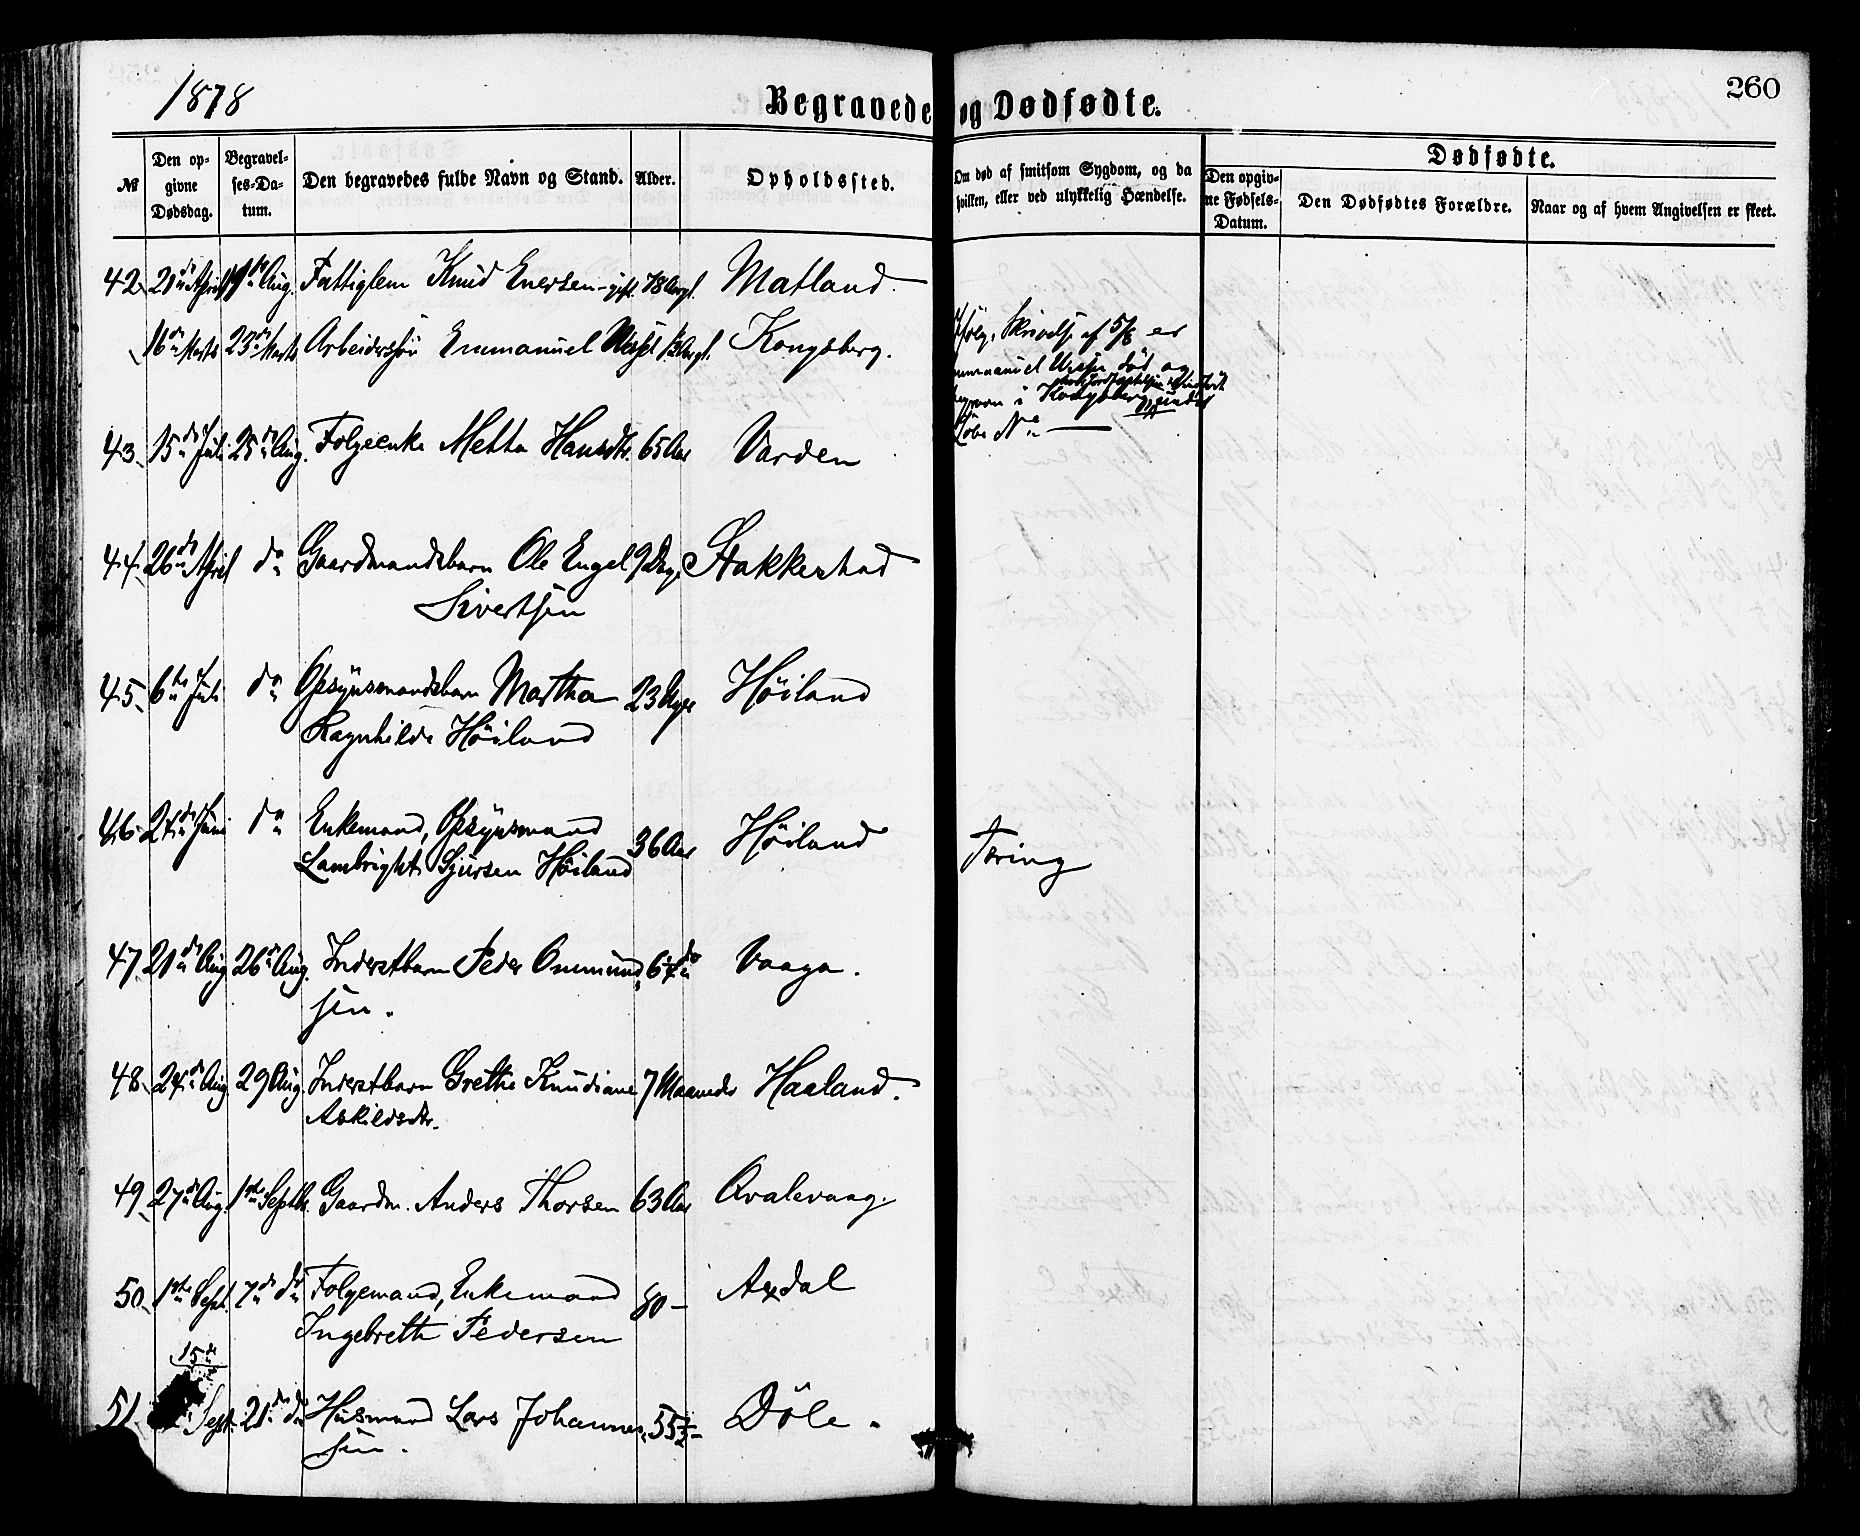 1878
Begravede og Dødfødte.
260
No
Den opgivne Dødsdag.
Begravelses-Datum.
Den begravedes fulde Navn og Stand.
Alder.
Opholdssted.
Om død af smitsom Sygdom, og da hvilken, eller ved ulykkelig Hændelse.
Dødfødte.
Den opgivne Fødsels-Datum.
Den Dødfødtes Forældre.
Naar og af hvem Angivelsen er skeet.
42. April Aug. Fattiglem Knud Enersen - gift. 78 Matland.
16de Marts 23de Marts Arbeidersøn Emmanuel Kongsberg.
Ifølg. Skrivelse af 5/8 er
Emmanuel død og
i Kongsberg
Løbe No —
43. 15de Juli 25de Aug. Folgeenke Metta Hansdtr. 65 Aar Varden
44. 26de April do Gaardmandsbarn Ole Engel 9 Dage Stakkestad
Sivertsen
45. 6te Juli do Opsynsmandsbarn Martha 23 Høiland
Ragnhilde Høiland
46. 24de Juni do Enkemand, Opsynsmand
Lambright Sjursen Høiland 36 Aar Høiland Tæring
47. 21de Aug 26de Aug. Inderstbarn Peder Ommund- Vaaga.
sen.
48. 24de Aug. 29 Aug. Inderstbarn Grethe Knudiane 7 Maaneder Haaland.
Askildsdtr.
49. 27de Aug. 1ste Septbr. Gaardm. Anders Thorsen 63 Aar Qvalevaag.
50. 1ste Sept. 7de do Folgemand, Enkemand 80 – Axdal
Ingebreth Pedersen
15de
51. Sept. 21de do Husmand Lars Johannes- 55½ – Døle.
sen.